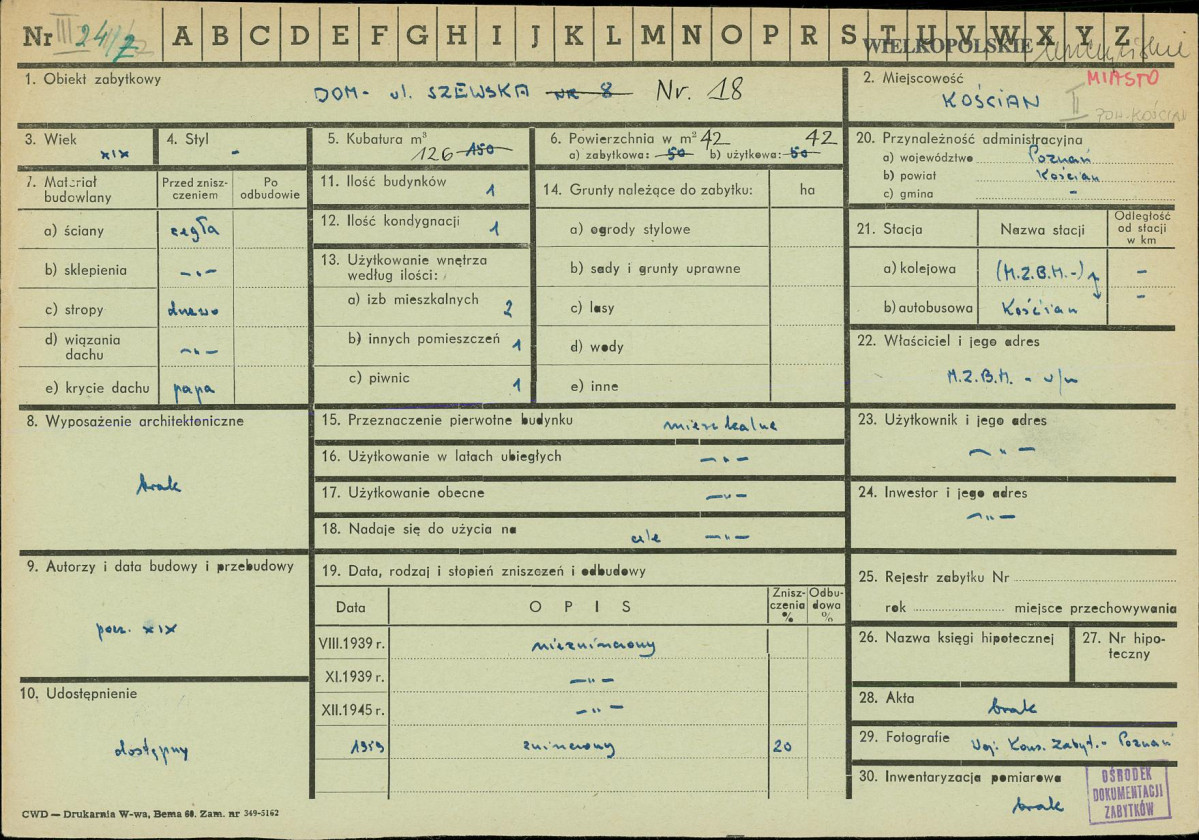 Nr III 24/2 A B C D E F G H I J K L M N O P R S T U V W X Y Z
WIELKOPOLSKIE
1. Obiekt zabytkowy
DOM - ul. SZEWSKA NR 8 Nr. 18
2. Miejscowość MIASTO
KOŚCIAN II pow. KOŚCIAN
3. Wiek
XIX
4. Styl
-
5. Kubatura m³
126 150
6. Powierzchnia w m² 42 42
a) zabytkowa: 50 b) użytkowa: 50
20. Przynależność administracyjna
a) województwo Poznań
b) powiat Kościan
c) gmina -
7. Materiał budowlany
Przed zniszczeniem
Po odbudowie
a) ściany cegła
b) sklepienia -"-
c) stropy drewno
d) wiązania dachu -"-
e) krycie dachu papa
11. Ilość budynków 1
12. Ilość kondygnacji 1
13. Użytkowanie wnętrza
według ilości:
a) izb mieszkalnych 2
b) innych pomieszczeń 1
c) piwnic 1
14. Grunty należące do zabytku: ha
a) ogrody stylowe
b) sady i grunty uprawne
c) lasy
d) wody
e) inne
21. Stacja Nazwa stacji
Odległość
od stacji
w km
a) kolejowa (M.Z.B.M.-) -
b) autobusowa Kościan -
22. Właściciel i jego adres
M.Z.B.M. - w/m
8. Wyposażenie architektoniczne
brak
15. Przeznaczenie pierwotne budynku mieszkalne
16. Użytkowanie w latach ubiegłych -"-
17. Użytkowanie obecne -"-
18. Nadaje się do użycia na cele -"-
23. Użytkownik i jego adres
-"-
24. Inwestor i jego adres
-"-
9. Autorzy i data budowy i przebudowy
pocz. XIX
10. Udostępnienie
dostępny
19. Data, rodzaj i stopień zniszczeń i odbudowy
Data OPIS Zniszczenia % Odbudowa %
VIII.1939 r. niezniszczony
XI.1939 r. -"-
XII.1945 r. -"-
1959 zniszczony 20
25. Rejestr zabytku Nr
rok miejsce przechowywania
26. Nazwa księgi hipotecznej
27. Nr hipoteczny
28. Akta brak
29. Fotografie Woj. Kons. Zabyt. - Poznań
30. Inwentaryzacja pomiarowa
brak
OŚRODEK
DOKUMENTACJI
ZABYTKÓW
CWD — Drukarnia W-wa, Bema 60. Zam. nr 349-5162